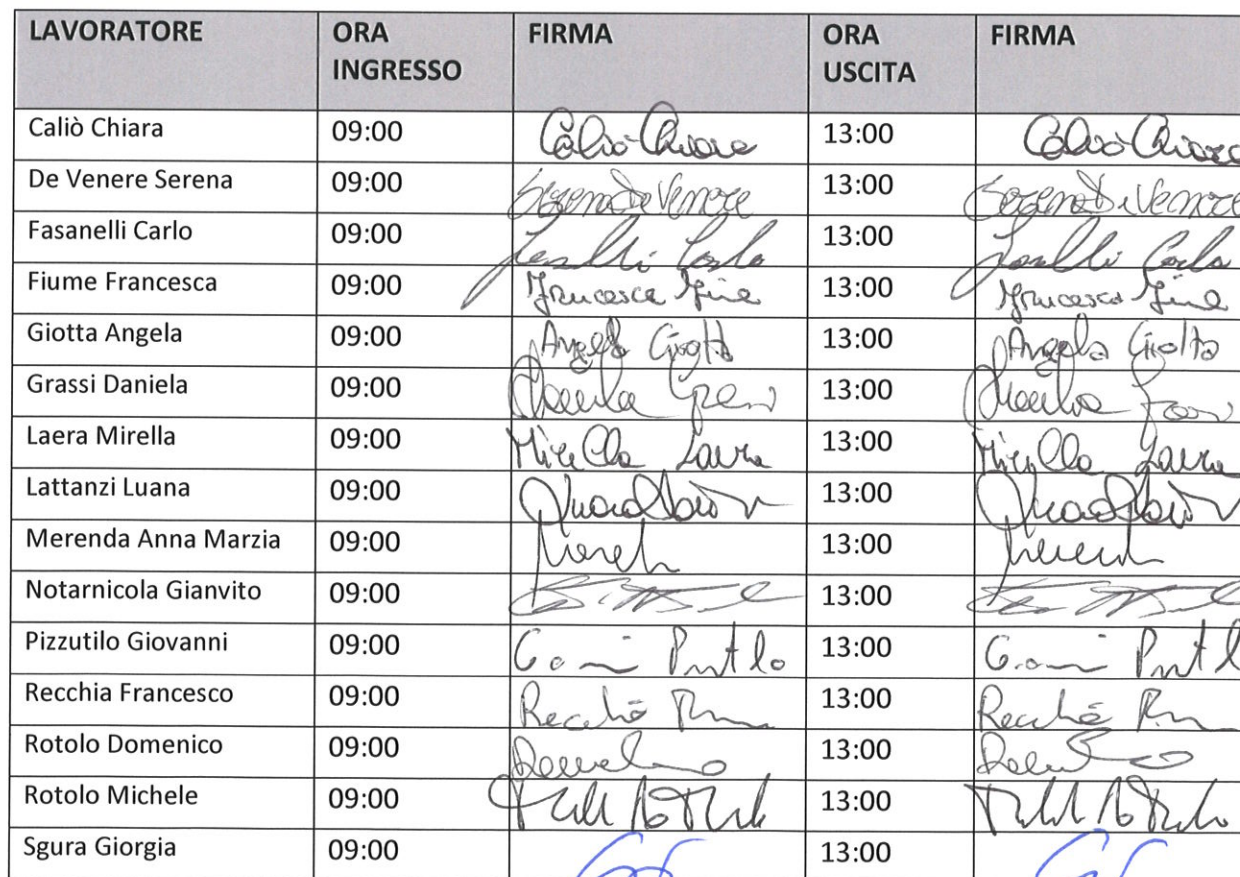 LAVORATORE ORA INGRESSO FIRMA ORA USCITA FIRMA
Caliò Chiara 09:00 Caliò Chiara 13:00 Caliò Chiara
De Venere Serena 09:00 Serena De Venere 13:00 Serena De Venere
Fasanelli Carlo 09:00 Carlo 13:00 Carlo
Fiume Francesca 09:00 Francesca 13:00 Francesca
Giotta Angela 09:00 Angela Giotta 13:00 Angela Giotta
Grassi Daniela 09:00 13:00
Laera Mirella 09:00 Mirella Laera 13:00 Mirella Laera
Lattanzi Luana 09:00 13:00
Merenda Anna Marzia 09:00 13:00
Notarnicola Gianvito 09:00 13:00
Pizzutilo Giovanni 09:00 13:00
Recchia Francesco 09:00 Recchia 13:00 Recchia
Rotolo Domenico 09:00 13:00
Rotolo Michele 09:00 13:00
Sgura Giorgia 09:00 13:00